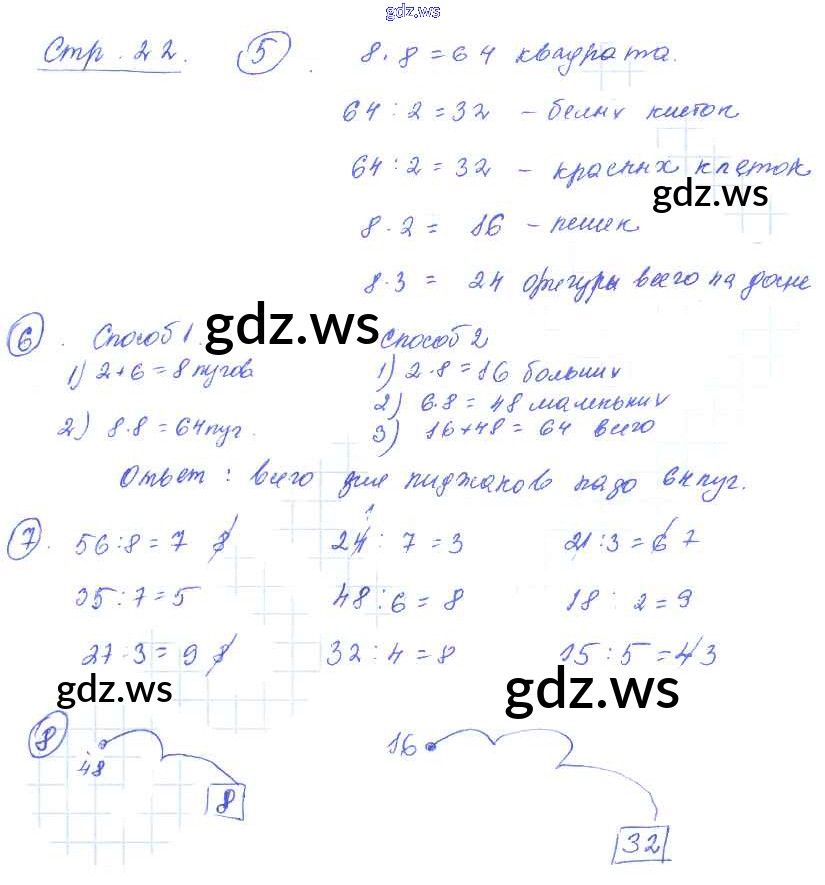 gdz.ws
Стр. 22. 5. 8 · 8 = 64 квадрата.
64 : 2 = 32 – белых клеток
64 : 2 = 32 – красных клеток
gdz.ws
8 · 2 = 16 – пешек
8 · 3 = 24 фигуры всего на доске
gdz.ws
6. Способ 1. Способ 2
1) 2 + 6 = 8 пугов 1) 2 · 8 = 16 больших
2) 6 · 8 = 48 маленьких
2) 8 · 8 = 64 пуг. 3) 16 + 48 = 64 всего
Ответ: всего для пиджаков надо 64 пуг.
7. 56 : 8 = 7 21 : 7 = 3 21 : 3 = 7
35 : 7 = 5 48 : 6 = 8 18 : 2 = 9
27 : 3 = 9 32 : 4 = 8 15 : 5 = 3
gdz.ws gdz.ws
8 48 8 16 32